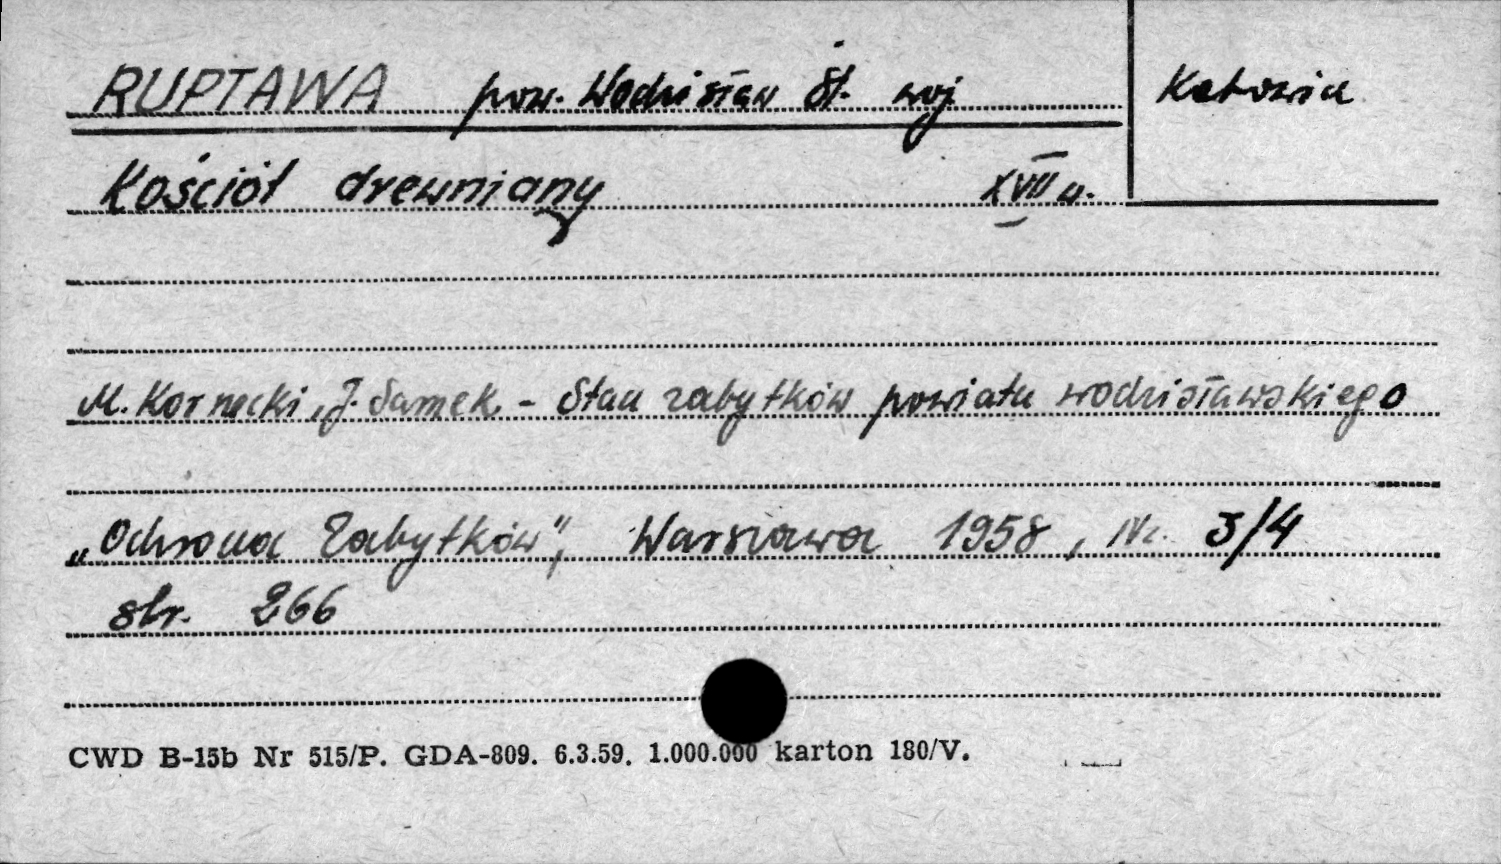 RUPTAWA pow. Wodzisław Śl. woj Katowice
Kościół drewniany XVII w.
M. Kornecki, J. Samek - Stan zabytków powiatu wodzisławskiego
„Ochrona Zabytków”, Warszawa 1958, Nr. 3/4
str. 266
CWD B-15b Nr 515/P. GDA-809. 6.3.59. 1.000.000 karton 180/V.